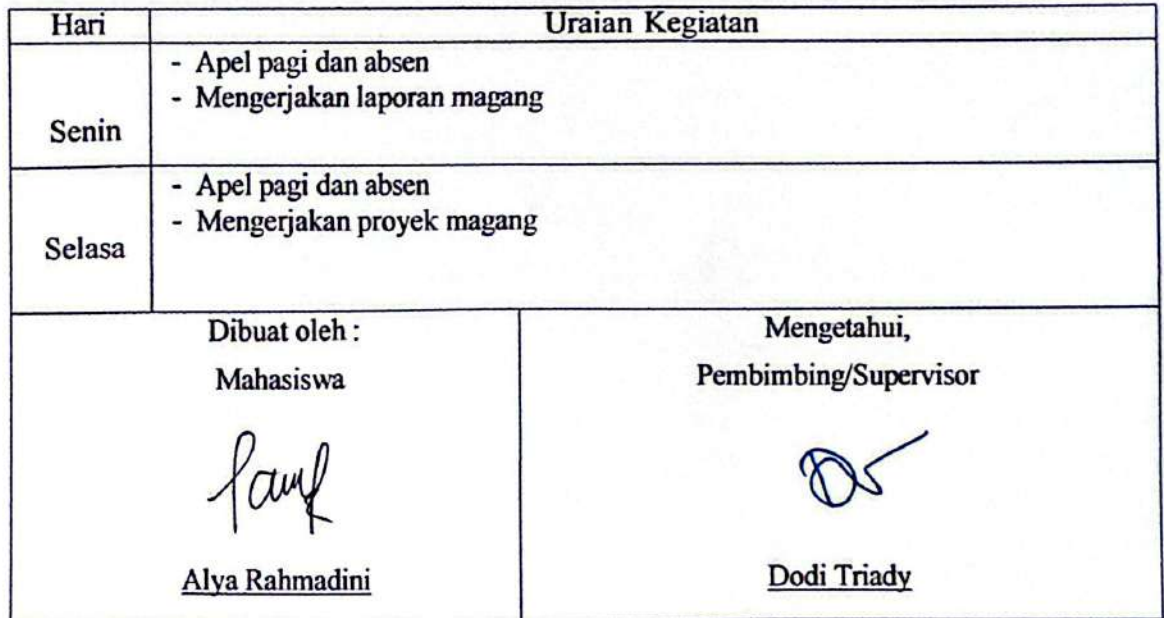 Hari Uraian Kegiatan
- Apel pagi dan absen
- Mengerjakan laporan magang
Senin
- Apel pagi dan absen
- Mengerjakan proyek magang
Selasa
Dibuat oleh :
Mahasiswa
Alya Rahmadini
Mengetahui,
Pembimbing/Supervisor
Dodi Triady